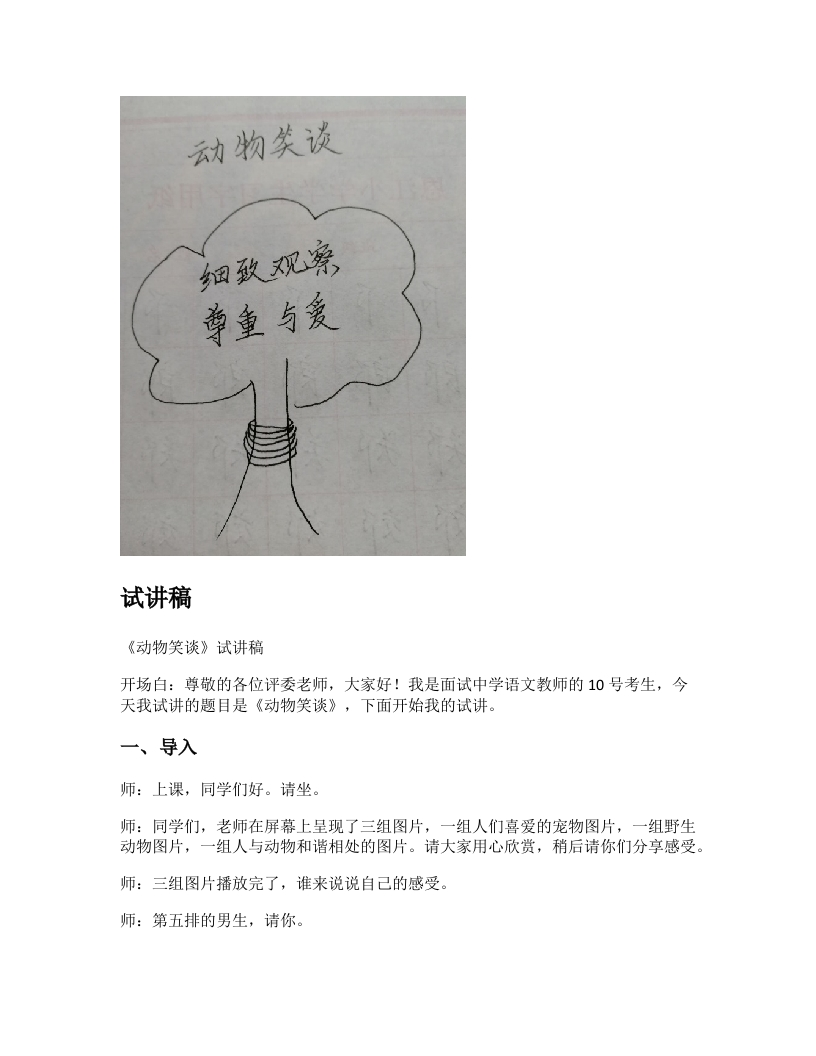 动物笑谈
细致观察
尊重与爱
试讲稿
《动物笑谈》试讲稿
开场白：尊敬的各位评委老师，大家好！我是面试中学语文教师的 10 号考生，今
天我试讲的题目是《动物笑谈》，下面开始我的试讲。
一、导入
师：上课，同学们好。请坐。
师：同学们，老师在屏幕上呈现了三组图片，一组人们喜爱的宠物图片，一组野生
动物图片，一组人与动物和谐相处的图片。请大家用心欣赏，稍后请你们分享感受。
师：三组图片播放完了，谁来说说自己的感受。
师：第五排的男生，请你。